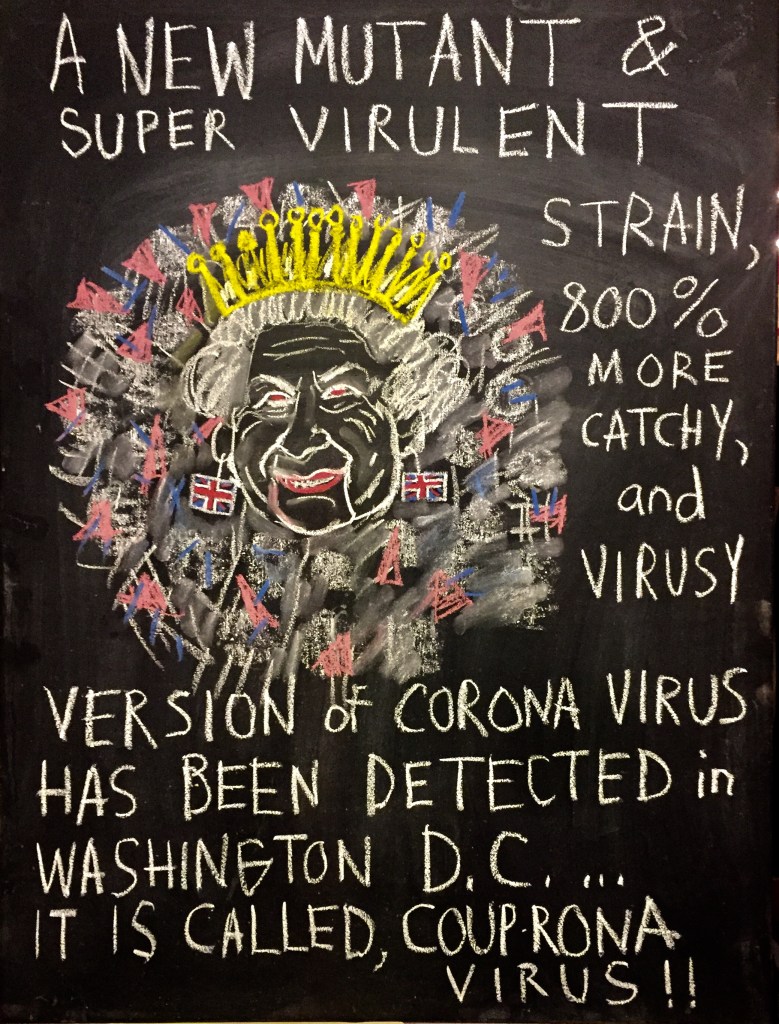 A NEW MUTANT &
SUPER VIRULENT
STRAIN,
800%
MORE
CATCHY,
and
VIRUSY
VERSION of CORONA VIRUS
HAS BEEN DETECTED in
WASHINGTON D.C. ...
IT IS CALLED, COUP-RONA
VIRUS!!